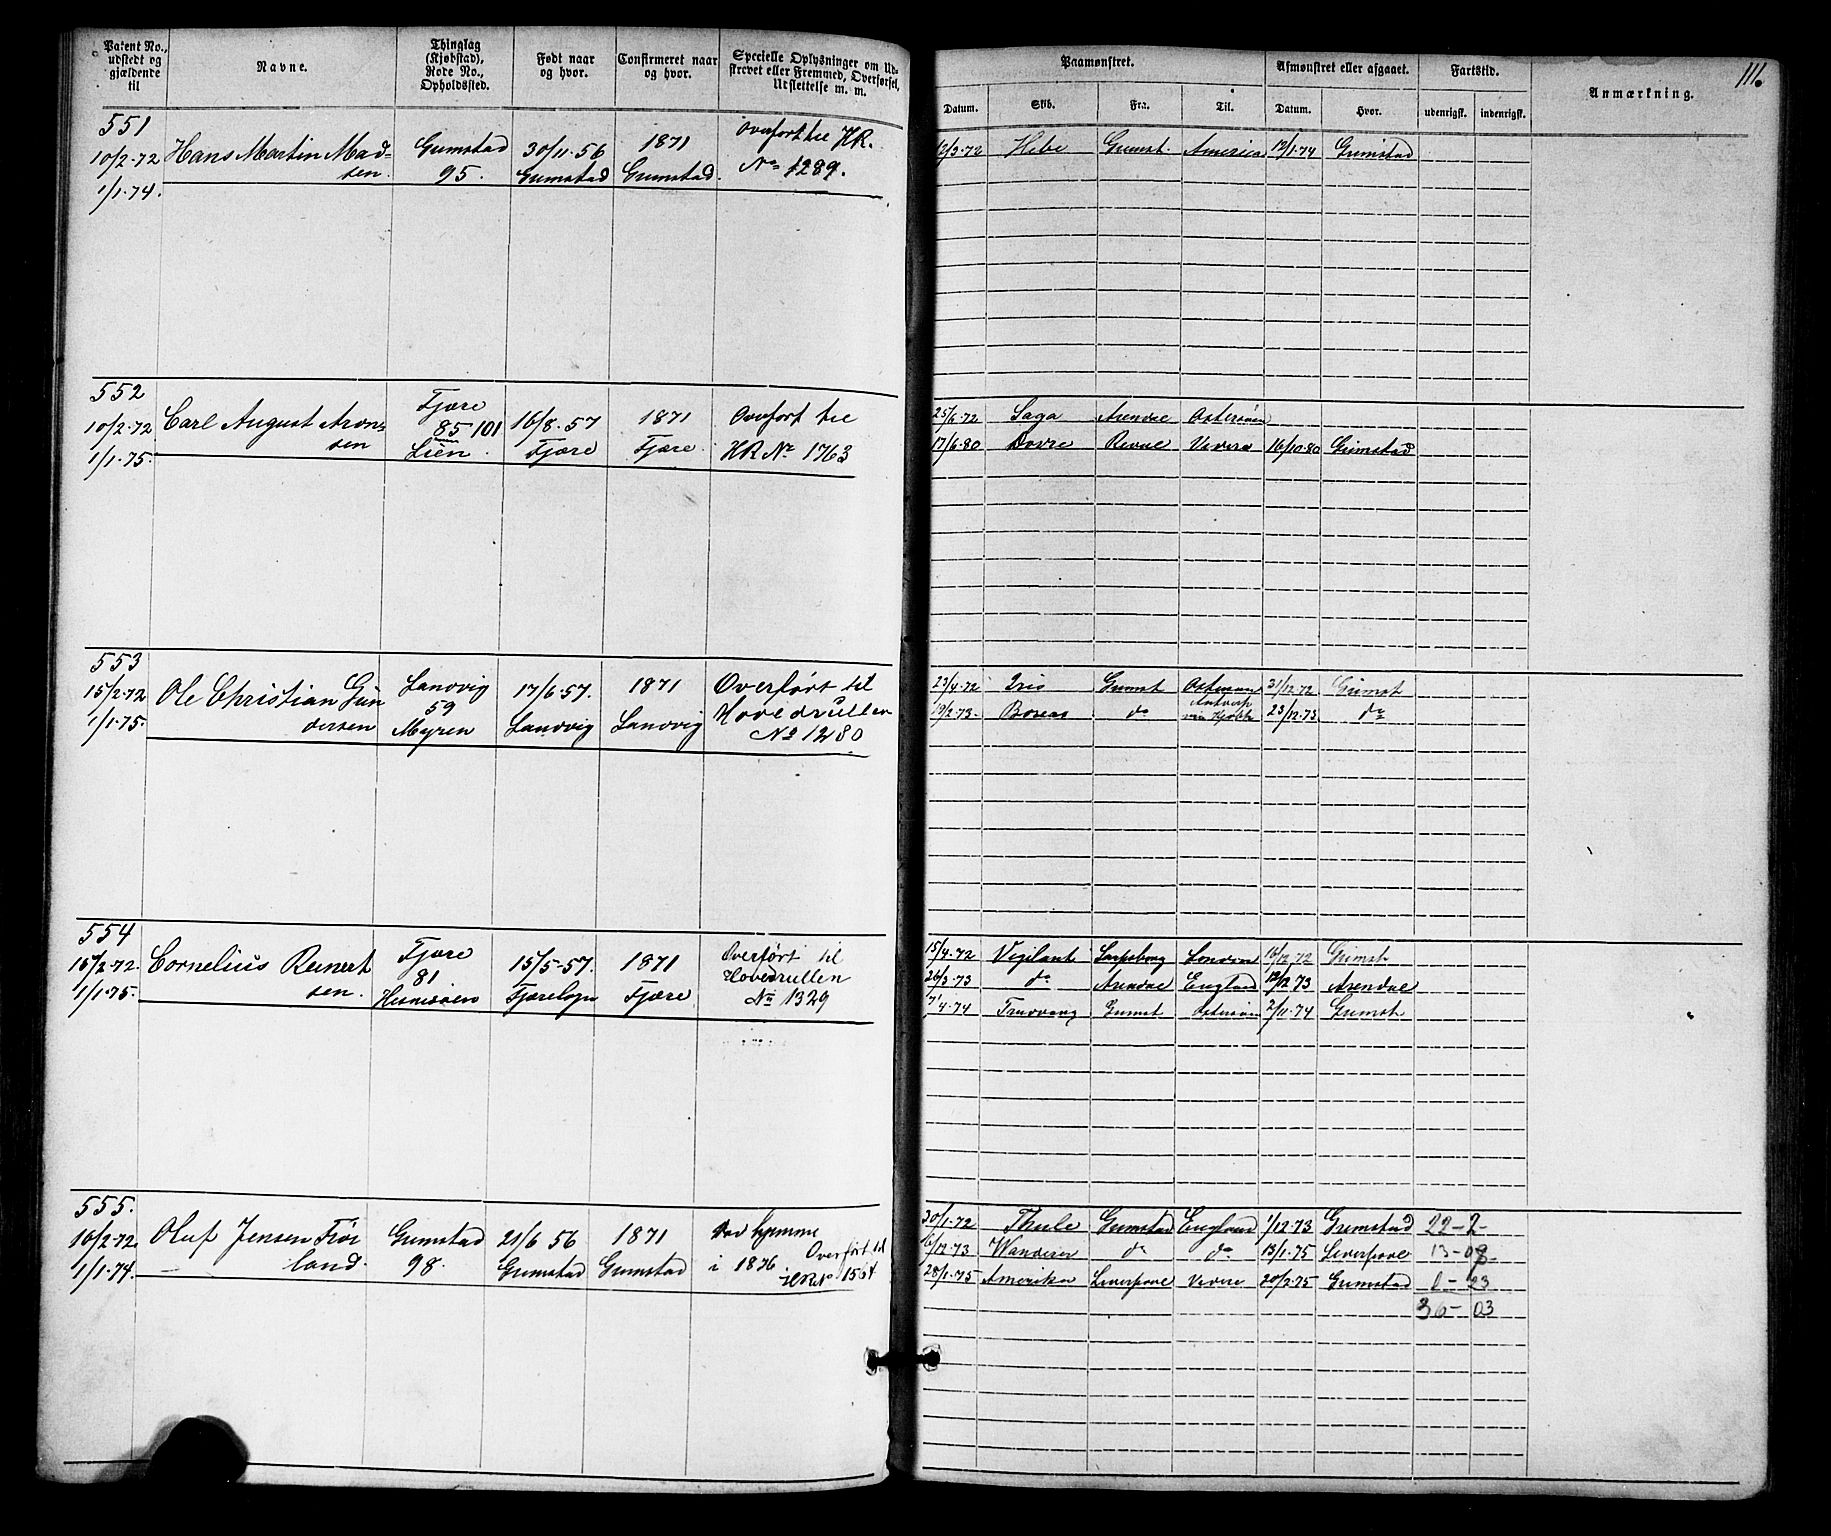 Patent No., udstedt og gjældende til
Navne.
Thinglag (Kjøbstad), Rode No., Opholdssted.
Født naar og hvor.
Confirmeret naar og hvor.
Specielle Oplysninger om Udskrevet eller Fremmed, Overførsel, Udslettelse m. m.
Paamønstret.
Afmønstret eller afgaaet.
Fartstid.
Anmærkning.
111
Datum. Skib. Fra. Til. Datum. Hvor. udenrigsk. indenrigsk.
551
10/2-72 Hans Martin Mad- Grimstad 30/11-56 1871 Overført til HR.
sen. 95. Grimstad Grimstad. No 1289.
1/1-74.
12/3-72 Hebe Grimst. America 12/1-74 Grimstad
552
10/2-72 Carl August Aron- Fjære 16/8-57 1871 Overført til
sen 85 101 Fjære Fjære HR No 1763
1/1-75. Lien
25/6-72 Saga Arendal Østersøen
17/6-80 Dovre 16/10-80 Grimstad
553
15/2-72 Ole Christian Gun Landvig 17/6-57. 1871 Overført til
dersen 59 Landvig Landvig Hovedrullen
1/1-75. Myren No 1280
23/4-72 Iris Grimst 31/12-72 Grimst
19/2-73. Boreas do 23/12-73 do
554
16/2-72 Cornelius Reinert Fjære 15/5-57. 1871 Overført til
sen. 81 Fjære Hovedrullen
1/1-75. No 1329
15/4-72 Vigilant Sarpsborg London 16/12-72 Grimst
26/3-73 do Arendal England 12/12-73 Arendal
7/4-74 Grimst Østersøen 2/11-74 Grimst
555.
16/2-72. Oluf Jensen Frø Grimstad 21/6 56 1871 Var hjemme
land. 98. Grimstad Grimstad i 1876. Overført til
1/1-74. HR No 1564
30/1-72 Thule Grimstad England 1/12-73 Grimstad 22-2-
6/12-73 Wanderer do do 13/1-75 Liverpool 13-08
28/1-75 Amerika Liverpool 20/2-75 Grimstad 0-23
36-03